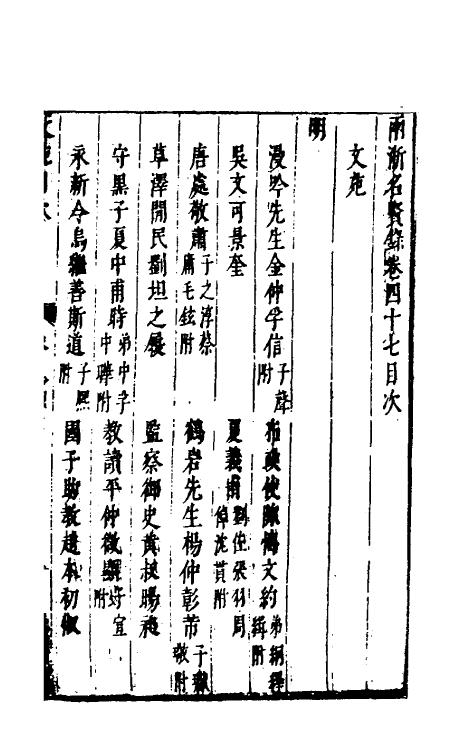 兩浙名賢錄卷四十七目次
文苑
明
漫吟先生金仲孚信子聲附
布政使陳文約弟綱緝附
吳文可景奎
夏義甫張羽周沈貫附
唐處敬肅子之淳蔡庸毛鉉附
鶴岩先生楊仲彰芾子敬附
草澤閒民劉坦之履
監察御史黃叔暘
守黑子夏中甫時弟中孚中驊附
教諭平仲微好宜附
永新令烏繼善斯道子熙附
國子助教趙本初俶